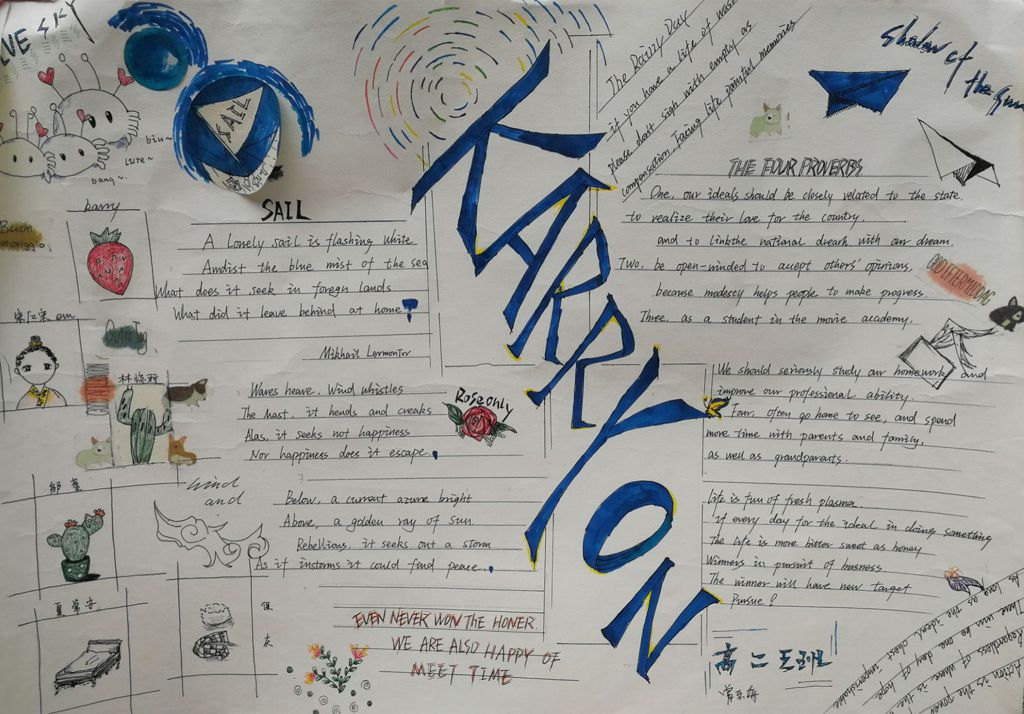 SKY
biu~
bang~
SAIL
Karry
SAIL
A lonely sail is flashing white
Amdist the blue mist of the sea
What does it seek in foregn lands
What did it leave behind at home
Mikhail Lermontor
Waves heave. Wind whistles
The mast. it bends and creaks
Alas, it seeks not happiness
Nor happiness does it escape.
Roseonly
wind
and
Below, a current azure bright
Above, a golden ray of sun
Rebellious. it seeks out a storm
As if instorms it could find peace.
EVEN NEVER WON THE HONER
WE ARE ALSO HAPPY OF
MEET TIME
KARRY ON
The Rainy Day
if you have a life of
please don't sigh with empty as
compensation. Facing life painful memories
Shadow of
the Sun
THE FOUR PROVERBS
One, our ideals should be closely related to the state.
to realize their love for the country
and to linkthe national dream with our dream.
Two, be open-minded to accept others' opinions,
because modesty helps people to make progress.
Three. as a student in the movie academy.
We should seriously study our homework and
improve our professional ability.
Four. often go home to see, and spend
more time with parents and family,
as well as grandparents.
Life is fun of fresh plasma.
if every day for the ideal in doing something
The life is more bitter sweet as honey
Winners in pursuit of business
The winner will have new target
Pursue!
高二 班
Action is the power